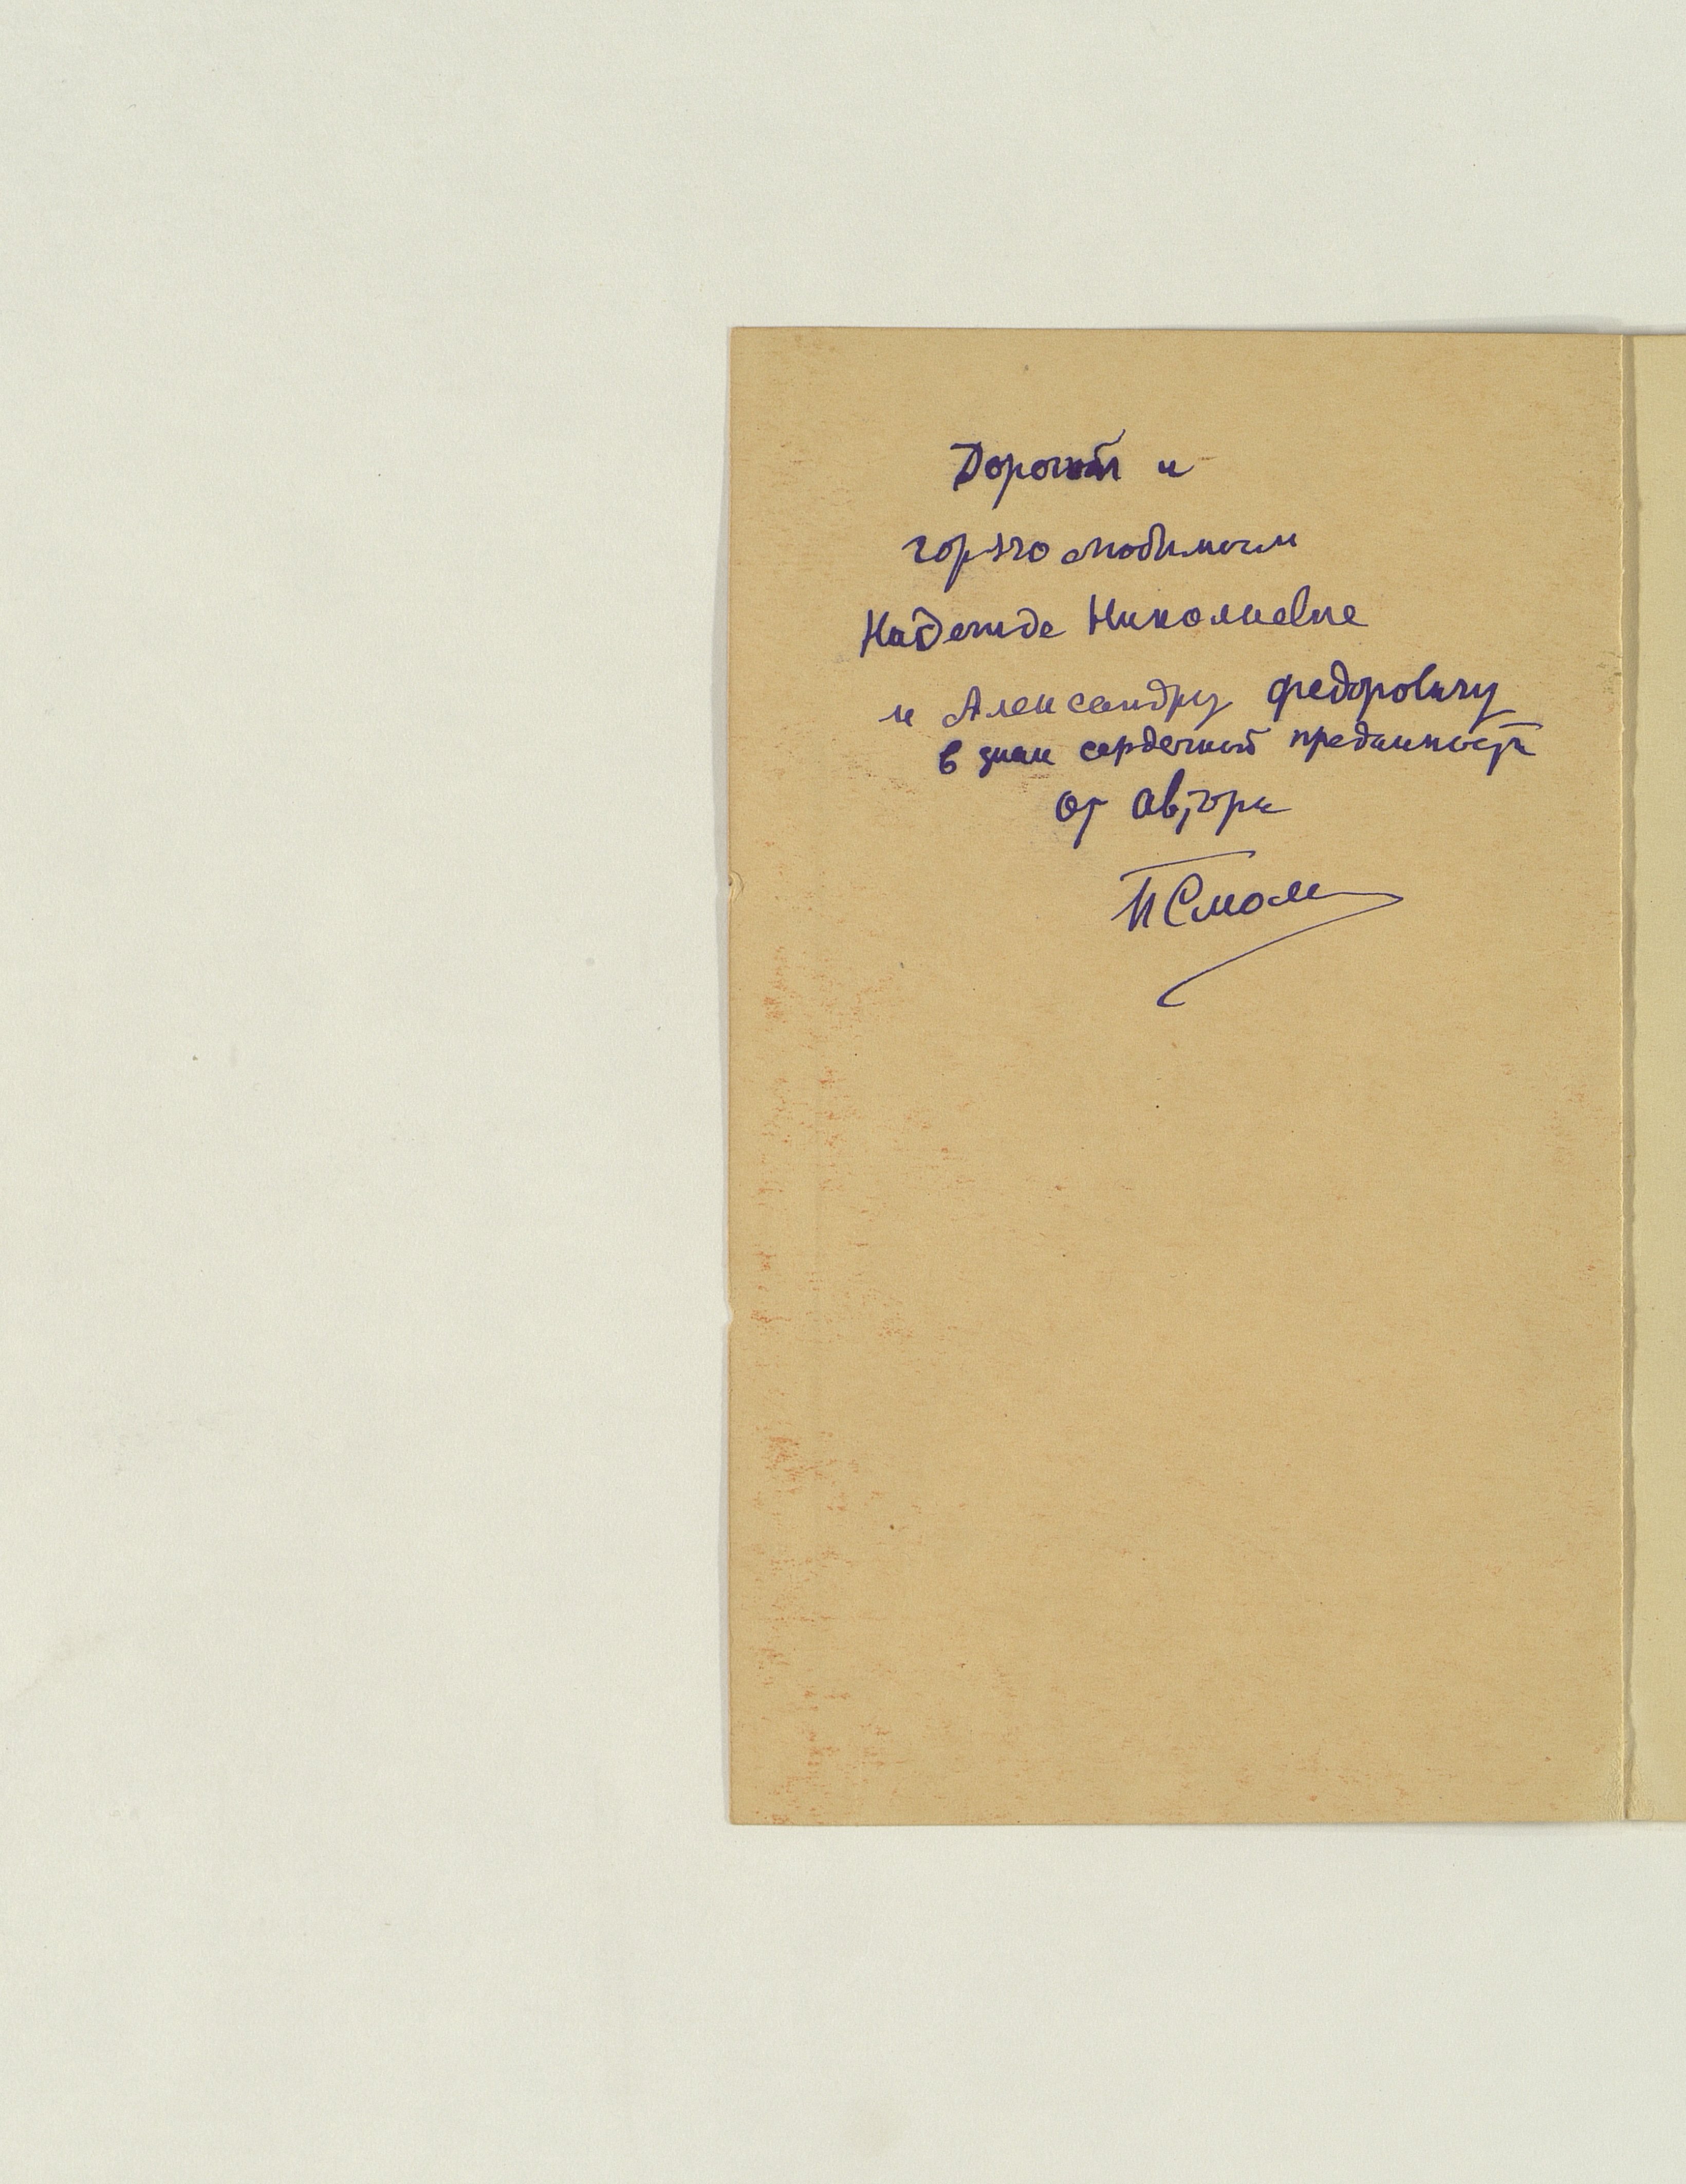 Дорогой и
горячо любимым
Надежде Николаевне
и Александру Федоровичу
в знак сердечной преданности
от автора
ПСмол